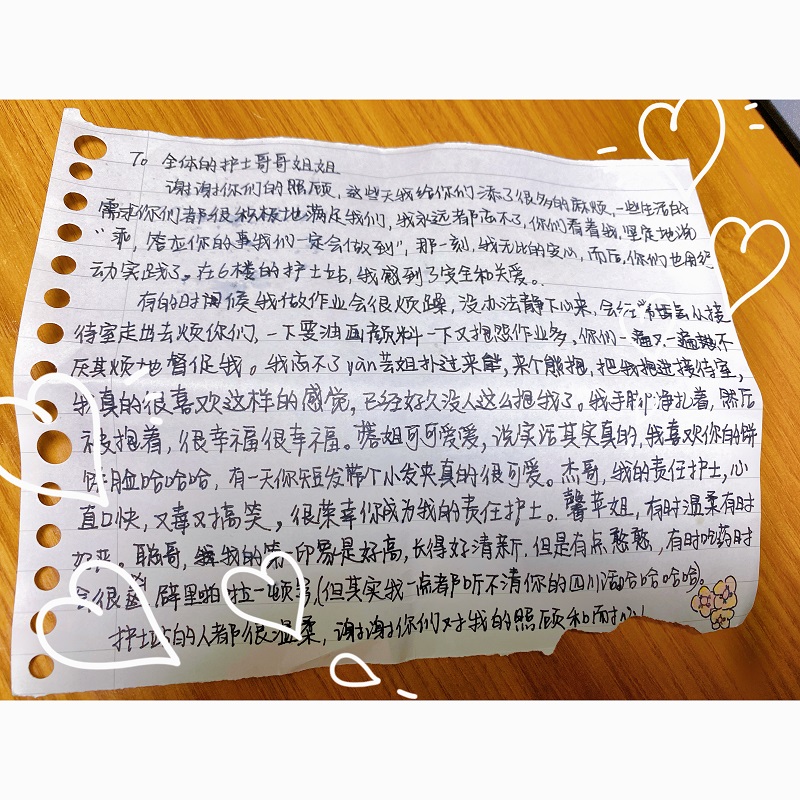 To 全体的护士哥哥姐姐
谢谢你们的照顾,这些天我给你们添了很多的麻烦,一些生活的
需求你们都很积极地满足我们,我永远都忘不了,你们看着我,坚定地说
"乖,答应你的事我们一定会做到",那一刻,我无比的安心,而后,你们也用行
动实践了。在6楼的护士站,我感到了安全和关爱。
有的时间候我做作业会很烦躁,没办法静下心来,会从接
待室走出去烦你们,一下要油画颜料一下又抱怨作业多,你们一遍又一遍不
厌其烦地督促我。我忘不了yàn芸姐扑过来能,来个熊抱,把我抱进接待室,
我真的很喜欢这样的感觉,已经好久没人这么抱我了。我手脚净扎着,然后
被抱着,很幸福很幸福。姐可可爱爱,说实话其实真的,我喜欢你的饼
饼脸哈哈哈,有一天你短发带个小发夹真的很可爱。杰哥,我的责任护士,心
直口快,又毒又搞笑,很荣幸你成为我的责任护士。馨苹姐,有时温柔有时
好恶。聪哥,我的第一印象是好高,长得好清新,但是有点憨憨,有时吃药时
会很,辟里啪拉一顿(但其实我一点都听不清你的四川话哈哈哈哈)。
护士站的人都很温柔,谢谢你们对我的照顾和耐心!